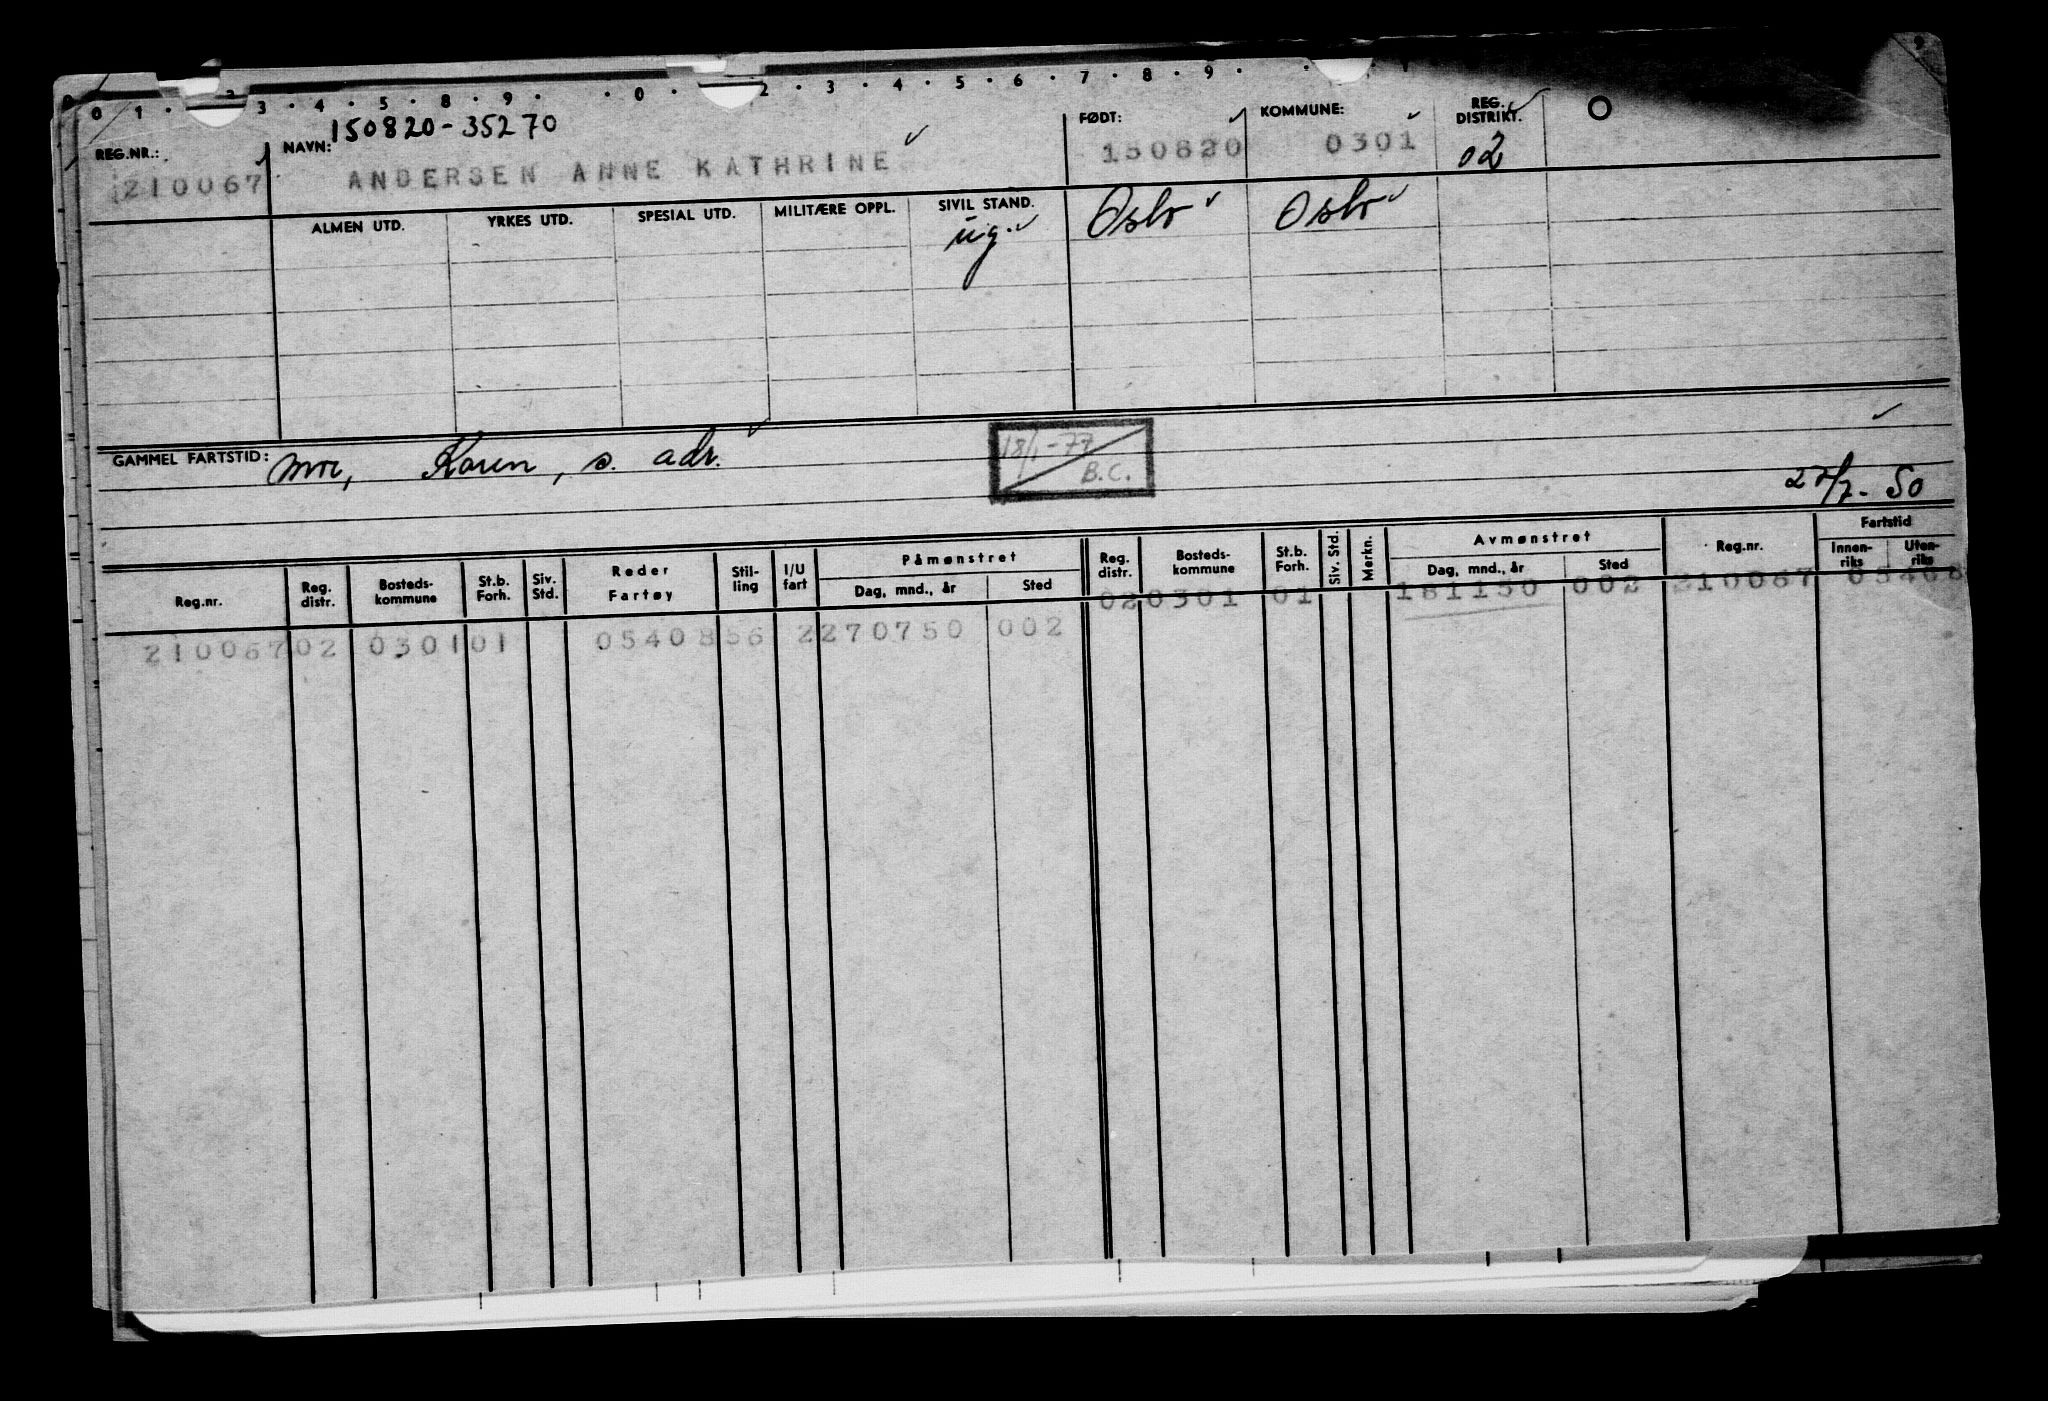 0 1 · 3 · 4 · 5 · 8 · 9 · · 0 · 2 · 3 · 4 · 5 · 6 · 7 · 8 · 9 ·
150820-35270
REG.NR.: NAVN: FØDT: KOMMUNE: REG. DISTRIKT.
210067 ANDERSEN ANNE KATHRINE 150820 0301 02
ALMEN UTD. YRKES UTD. SPESIAL UTD. MILITÆRE OPPL. SIVIL STAND. Oslo Oslo
ug.
GAMMEL FARTSTID: mor, Karen, s. adr.
18/1-77
B.C.
27/7-50
Reg.nr. Reg. distr. Bosteds-kommune St.b. Forh. Siv. Std. Reder Fartøy Stil-ling I/U fart Påmønstret Dag, mnd., år Sted Reg. distr. Bosteds-kommune St.b. Forh. Siv. Std. Merkn. Avmønstret Dag, mnd., år Sted Reg.nr. Fartstid Innen-riks Uten-riks
02 0301 01 181150 002 210067 05408
210067 02 0301 01 05408 56 2 270750 002